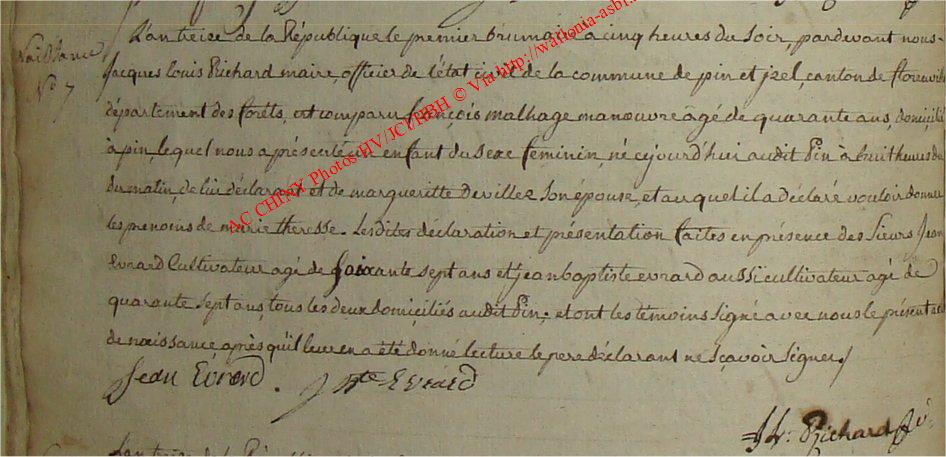 Naissance
N° 7
L'an treize de la République le premier brumaire à cinq heures du soir, pardevant nous
Jacques louis Richard maire, officier de l'état civil de la commune de pin et jzel, canton de florenville
département des forêts, est comparu françois malhage manœuvre âgé de quarante ans, domicilié
à pin, lequel nous a présenté un enfant du sexe feminin, né cejourd'hui audit Pin à huit heures du
du matin, de lui déclarant et de margueritte devillez son épouse, et auquel il a déclaré vouloir donner
les prenoms de marie theresse. Lesdites déclaration et présentation faites en présence des sieurs Jean
Evrard Cultivateur agé de soixante sept ans et jean baptiste evrard aussi cultivateur agé de
quarante sept ans, tous les deux domiciliés audit Pin; et ont les témoins signé avec nous le présent acte
de naissance, après qu'il leur en a été donné lecture le pere déclarant ne sçavoir signer
Jean Evrard. J Bte Evrard
JL: Richard
L'an treize de la Rép
AC CHINY Photos HV/JCl/RBH © Via http://wallonia-asbl.